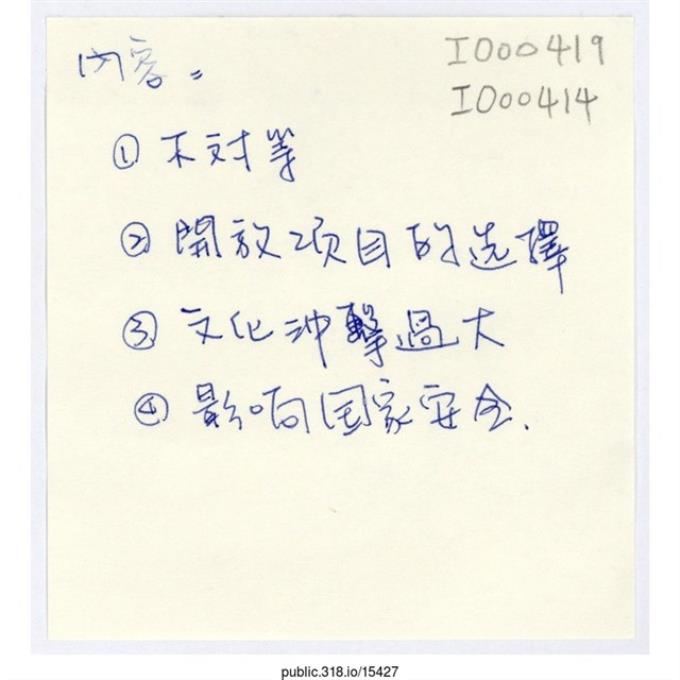 內容:
I000419
I000414
① 不对等
② 開放项目的选擇
③ 文化冲擊過大
④ 影响国家安全.
public.318.io/15427